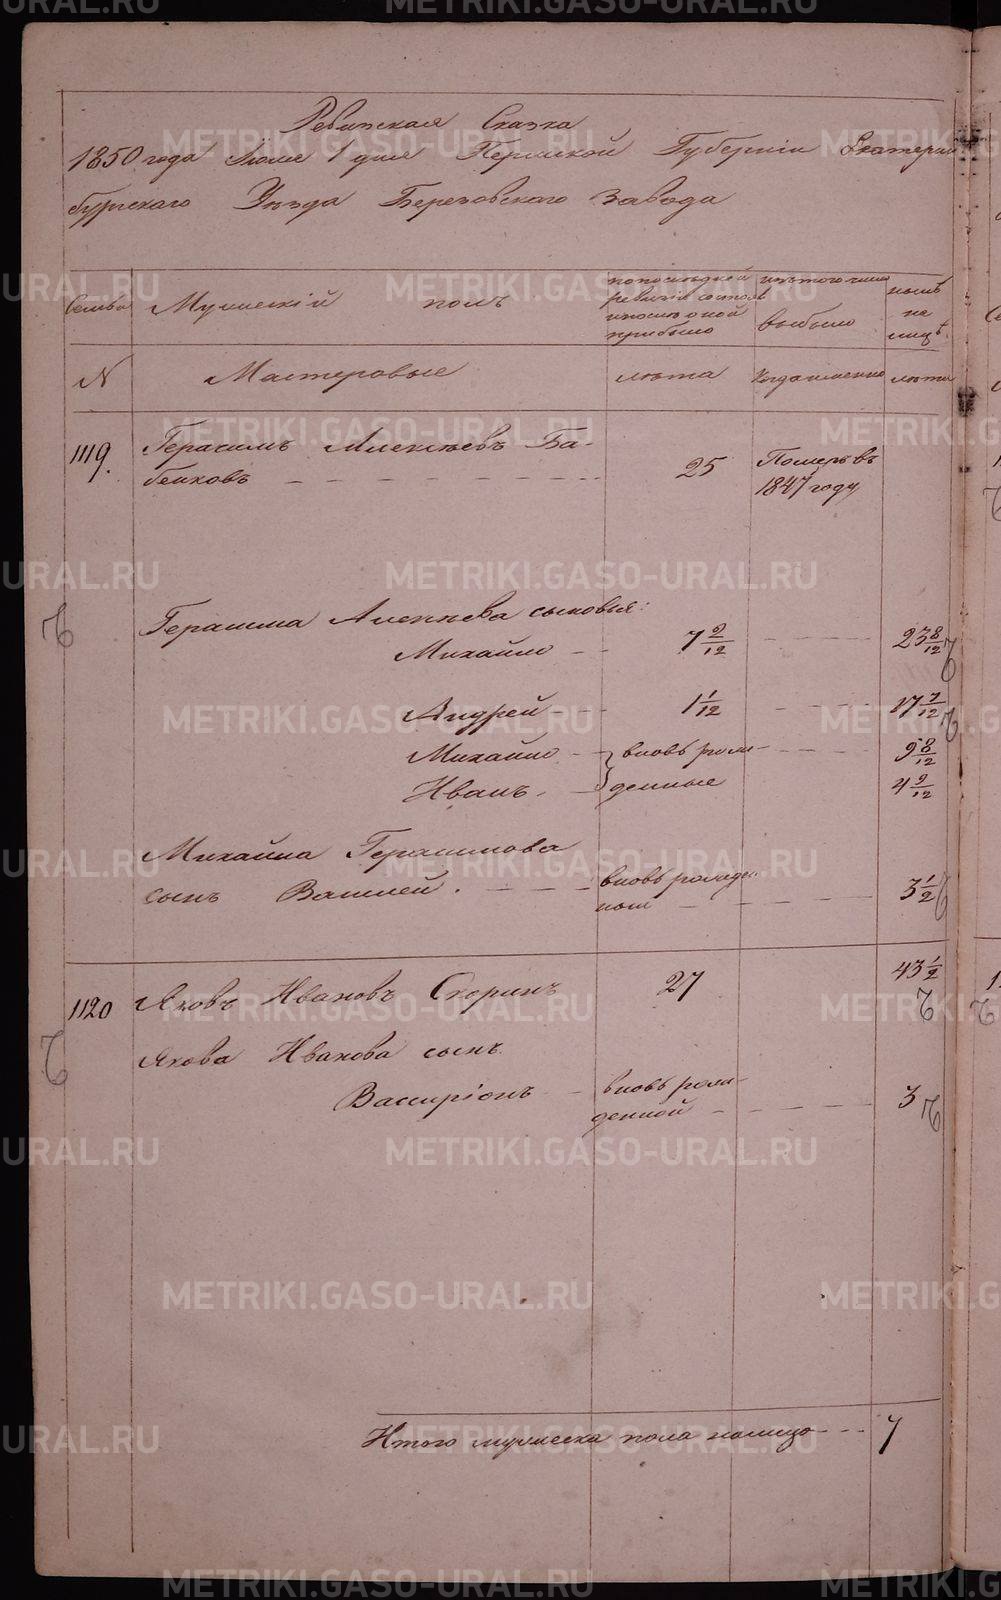 Ревизская Сказка
1850 года Июля 1 дня Пермской Губернiи Екатерин
бургскаго Уѣзда Березовскаго Завода
Семьи
Мужескiй полъ
по последней
ревизiи состояло
и после оной
прибыло
изъ того числа
выбыло
нынѣ
на
лицѣ
N
Мастеровые
лѣта
Когда именно
лѣта
1119.
Герасимъ Алексѣевъ Ба-
бенковъ
25
Померъ въ
1847 году
Герасима Алексѣева сыновья:
Михайло
7 2/12
23 8/12
Андрей
1 1/12
17 7/12
Михайло
вновь рож-
9 8/12
Иванъ
денные
4 2/12
Михайла Герасимова
сынъ Василей
вновь рожден-
ной
3 1/2
1120
Яковъ Ивановъ Скоринъ
27
43 1/2
Якова Иванова сынъ
вновь рож-
денной
3
Итого мужеска пола налицо
7
METRIKI.GASO-URAL.RU